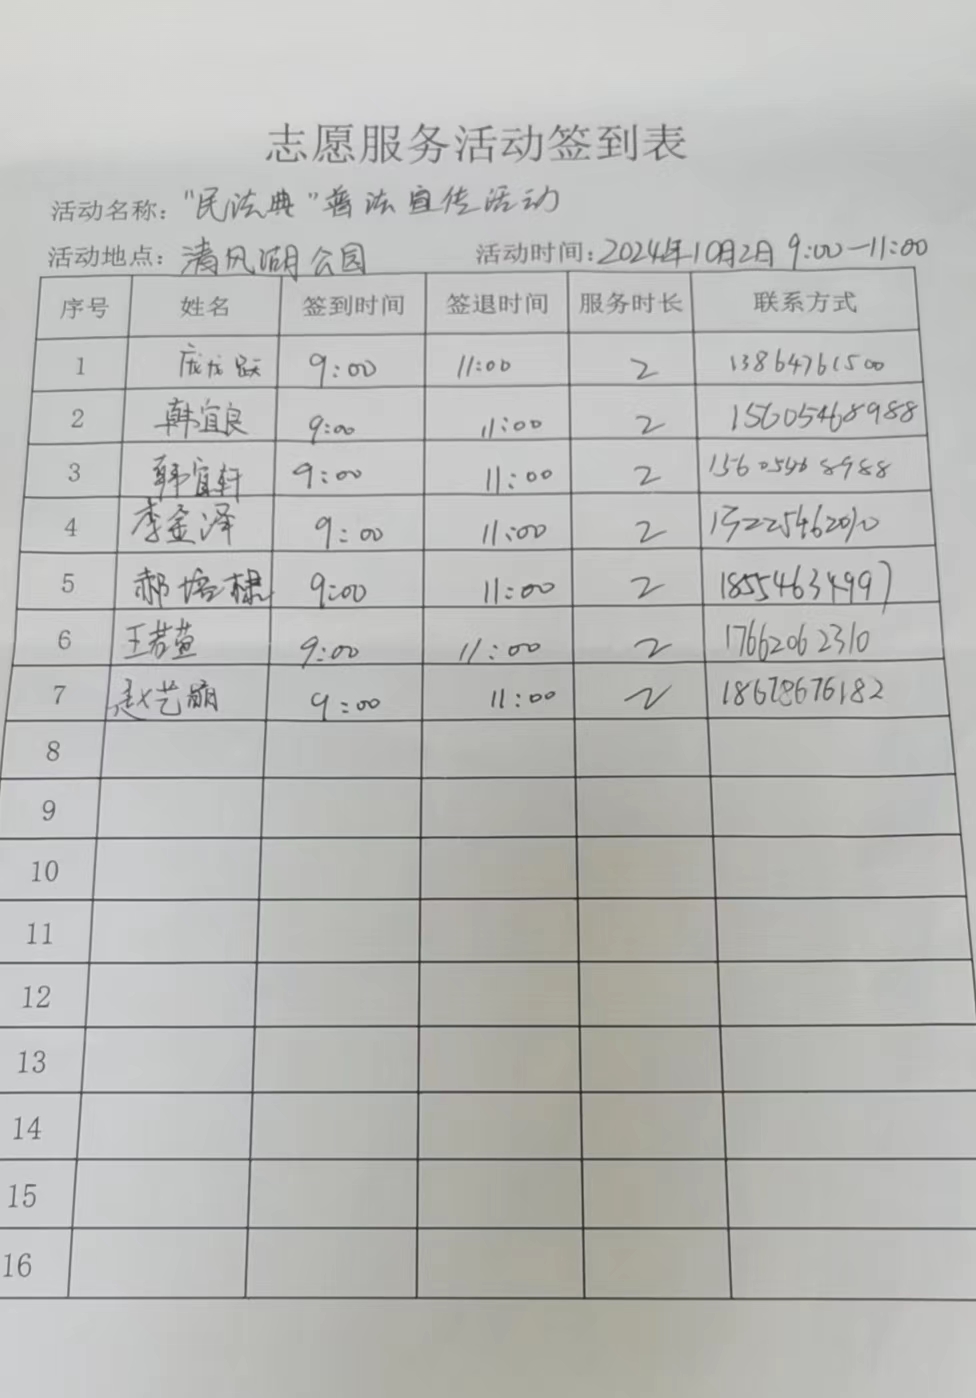 志愿服务活动签到表
活动名称："民法典"普法宣传活动
活动地点：清风湖公园 活动时间：2024年10月2日 9:00—11:00
序号 姓名 签到时间 签退时间 服务时长 联系方式
1 庞龙跃 9:00 11:00 2 13864761500
2 韩宜良 9:00 11:00 2 15605468988
3 韩宜轩 9:00 11:00 2 15605468988
4 李金泽 9:00 11:00 2
5 郝培棣 9:00 11:00 2 18554634997
6 王若萱 9:00 11:00 2 17662062310
7 赵艺 9:00 11:00 2 18678676182
8
9
10
11
12
13
14
15
16